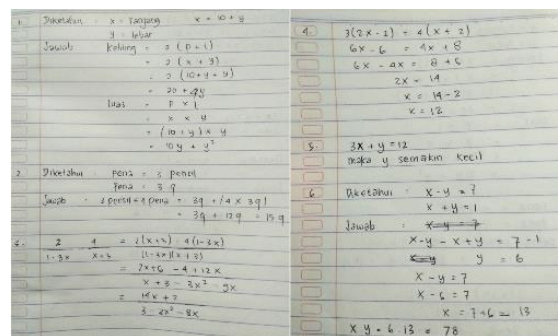 1. Diketahui : x = Panjang x = 10 + y
y = lebar
Jawab Keliling = 2 (p + l)
= 2 (x + y)
= 2 (10 + y + y)
= 20 + 4y
Luas = p x l
= x x y
= (10 + y) x y
= 10y + y²
2. Diketahui : pena = 3 pensil
pena = 3 q
Jawab : 3 pensil + 4 pena = 3q + (4 x 3q)
= 3q + 12q = 15q
3. 2/(1-3x) 4/(x+3) = 2(x+3) - 4(1-3x)
(1-3x)(x+3)
= 2x+6 - 4 + 12x
x + 3 - 3x² - 9x
= 14x + 2
3 - 3x² - 8x
4. 3(2x - 2) = 4(x + 2)
6x - 6 = 4x + 8
6x - 4x = 8 + 6
2x = 14
x = 14 - 2
x = 12
5. 3x + y = 12
maka y semakin kecil
6 Diketahui : x - y = 7
x + y = 1
Jawab : x - y = 7
x - y - x + y = 7 - 1
y = 6
x - y = 7
x - 6 = 7
x = 7 + 6 = 13
x y = 6 . 13 = 78